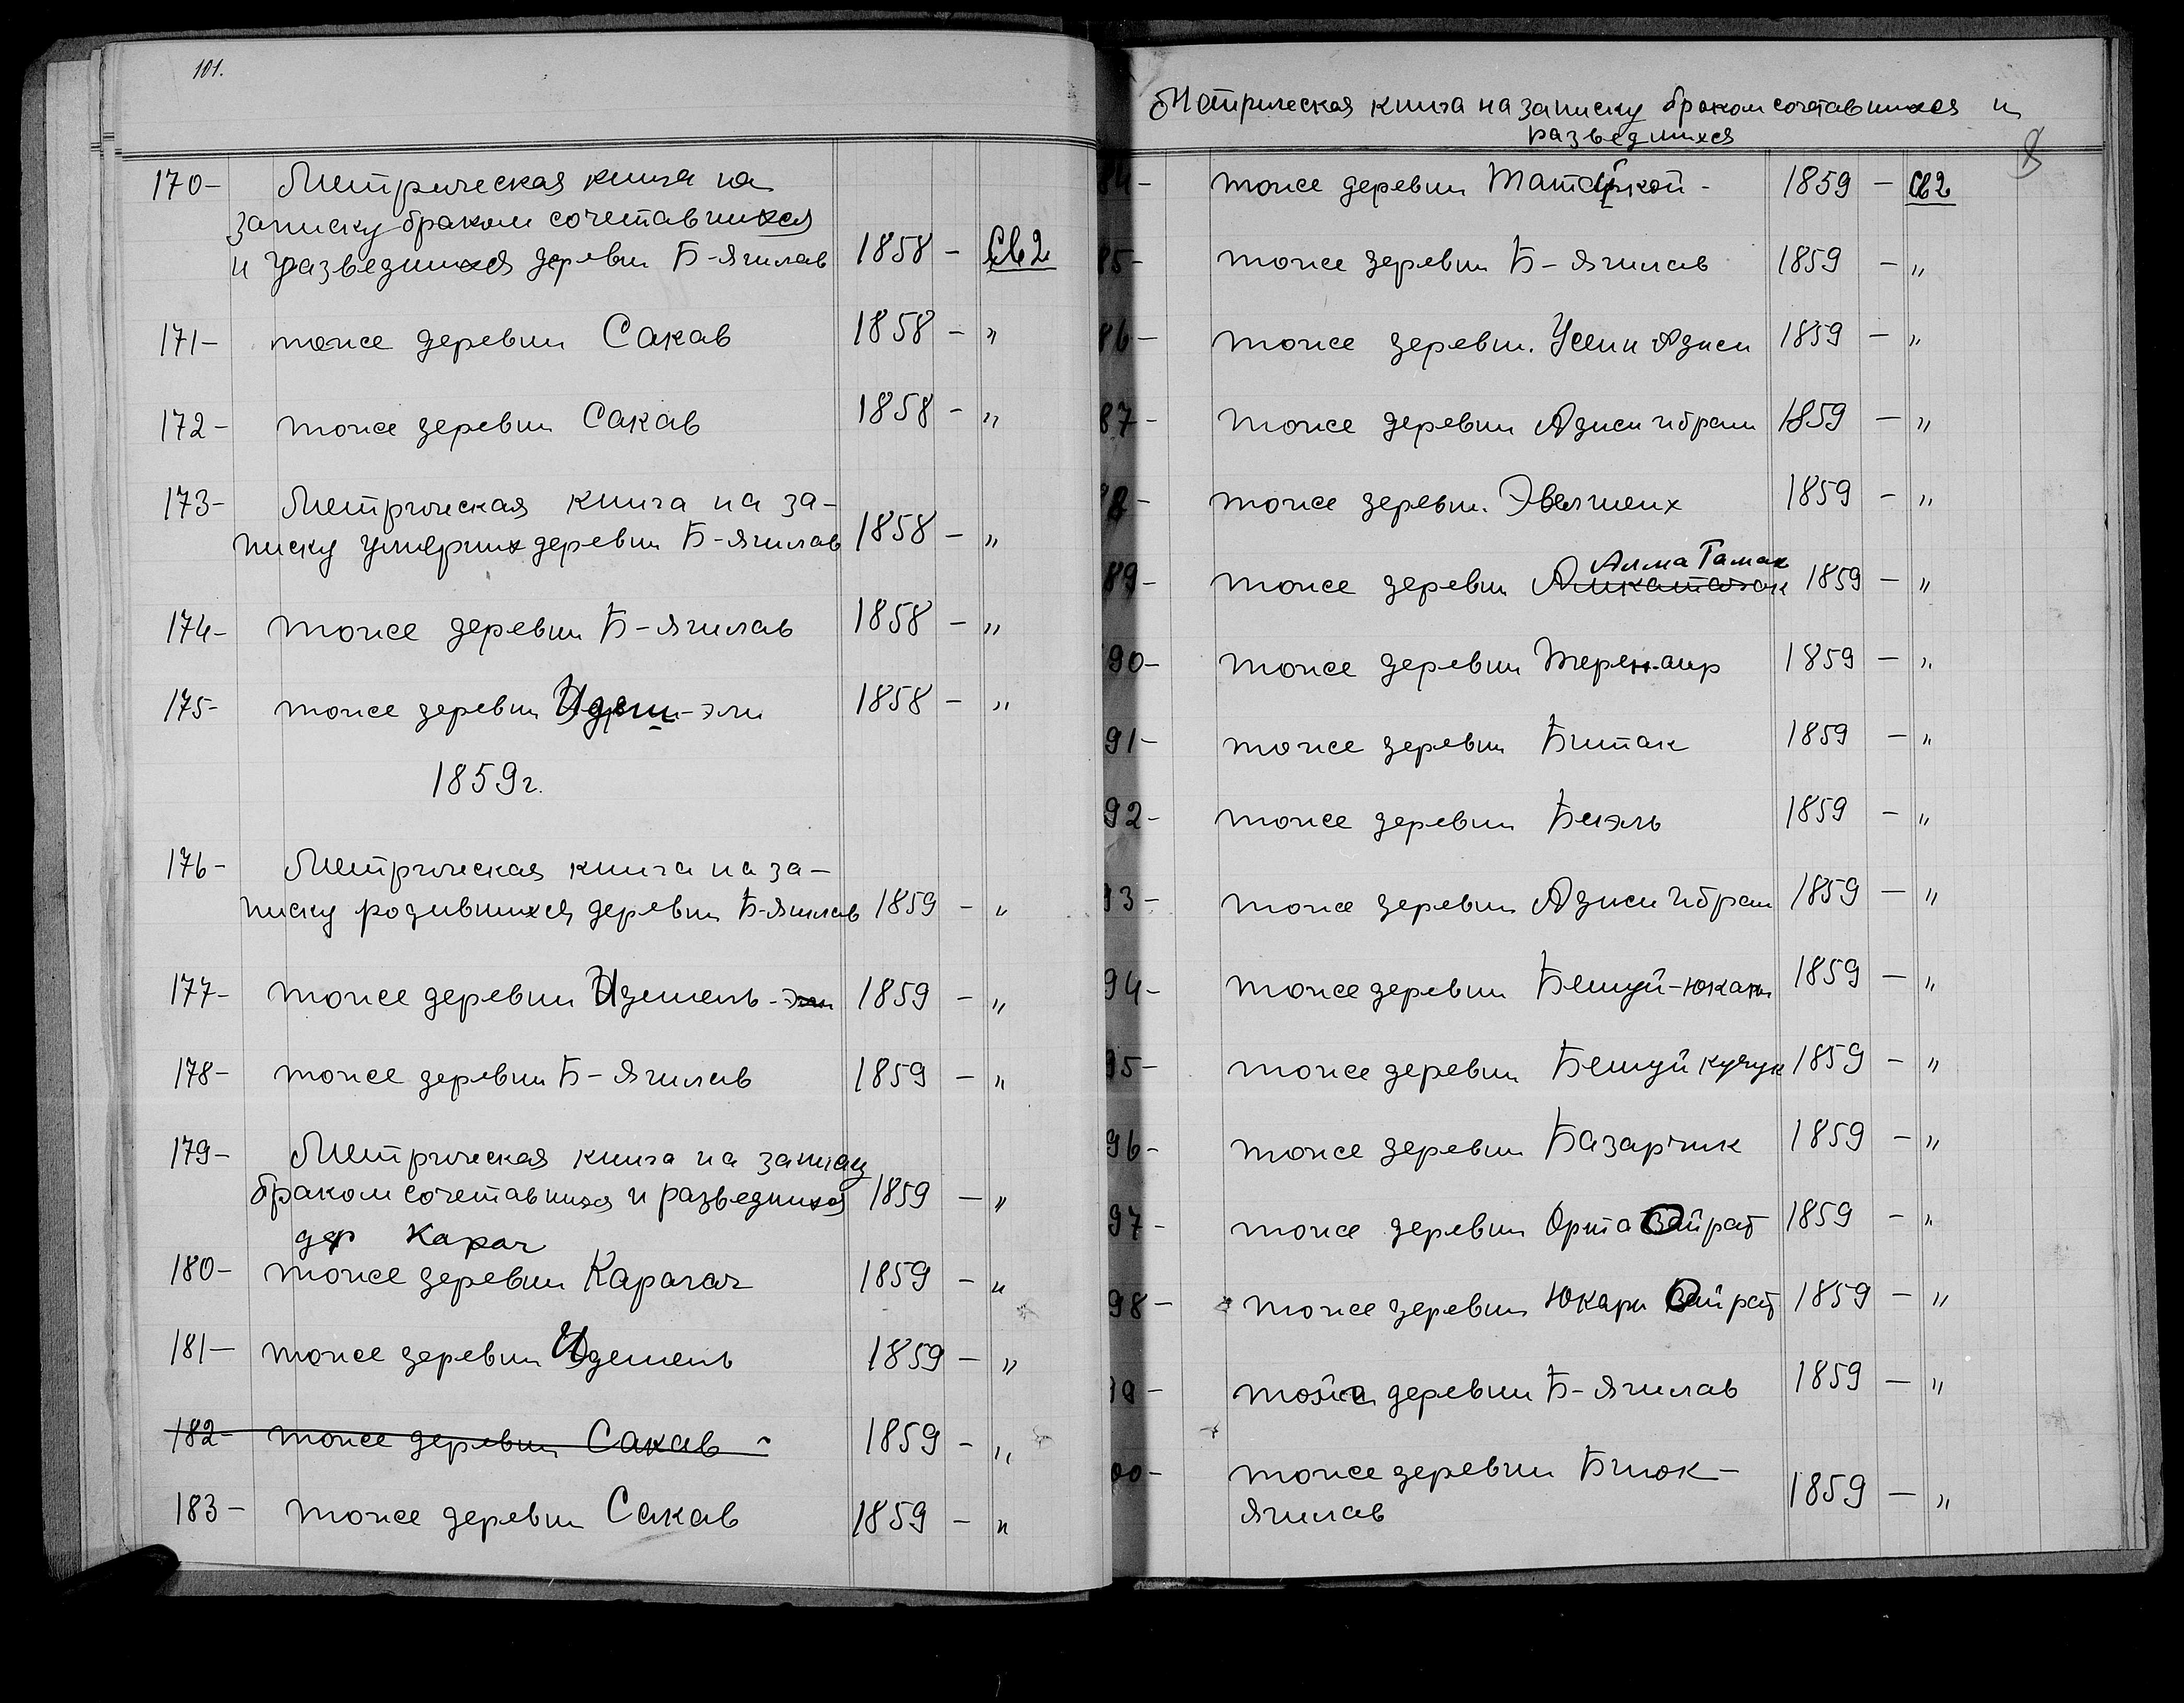 101.
170- Метрическая книга на
записку браком сочетавшихся
и разведшихся деревни Б-Яшлав 1858 - Св2
171- тоже деревни Сакав 1858 - "
172- тоже деревни Сакав 1858 - "
173- Метрическая книга на за-
писку умерших деревни Б-Яшлав 1858 - "
174- тоже деревни Б-Яшлав 1858 - "
175- тоже деревни -эли 1858 - "
1859г.
176- Метрическая книга на за-
писку родившихся деревни Б-Яшлав 1859 - "
177- тоже деревни Идешель-эли 1859 - "
178- тоже деревни Б-Яшлав 1859 - "
179- Метрическая книга на записку
браком сочетавшихся и разведшихся 1859 - "
дер Карач
180- тоже деревни Карагач 1859 - "
181- тоже деревни Идешель 1859 - "
182- тоже деревни Сакав 1859 - "
183- тоже деревни Сакав 1859 - "
Метрическая книга на записку браком сочетавшихся и
разведшихся
8
84- тоже деревни 1859 - Св2
85- тоже деревни Б-Яшлав 1859 - "
86- тоже деревн. Усеин Азиси 1859 - "
87- тоже деревни Азиси Ибраим 1859 - "
88- тоже деревн. Эвелшеих 1859 - "
Алма Тамак
89- тоже деревни 1859 - "
90- тоже деревни Терен-аир 1859 - "
91- тоже деревни Битак 1859 - "
92- тоже деревни Биэль 1859 - "
93- тоже деревни Азиси Ибраим 1859 - "
94- тоже деревни Бешуй-юкары 1859 - "
95- тоже деревни Бешуй кучук 1859 - "
96- тоже деревни Базарчик 1859 - "
97- тоже деревни Орта Ойрат 1859 - "
98- тоже деревни Юкари Ойрат 1859 - "
99- тоже деревни Б-Яшлав 1859 - "
00- тоже деревни Биюк-
Яшлав 1859 - "